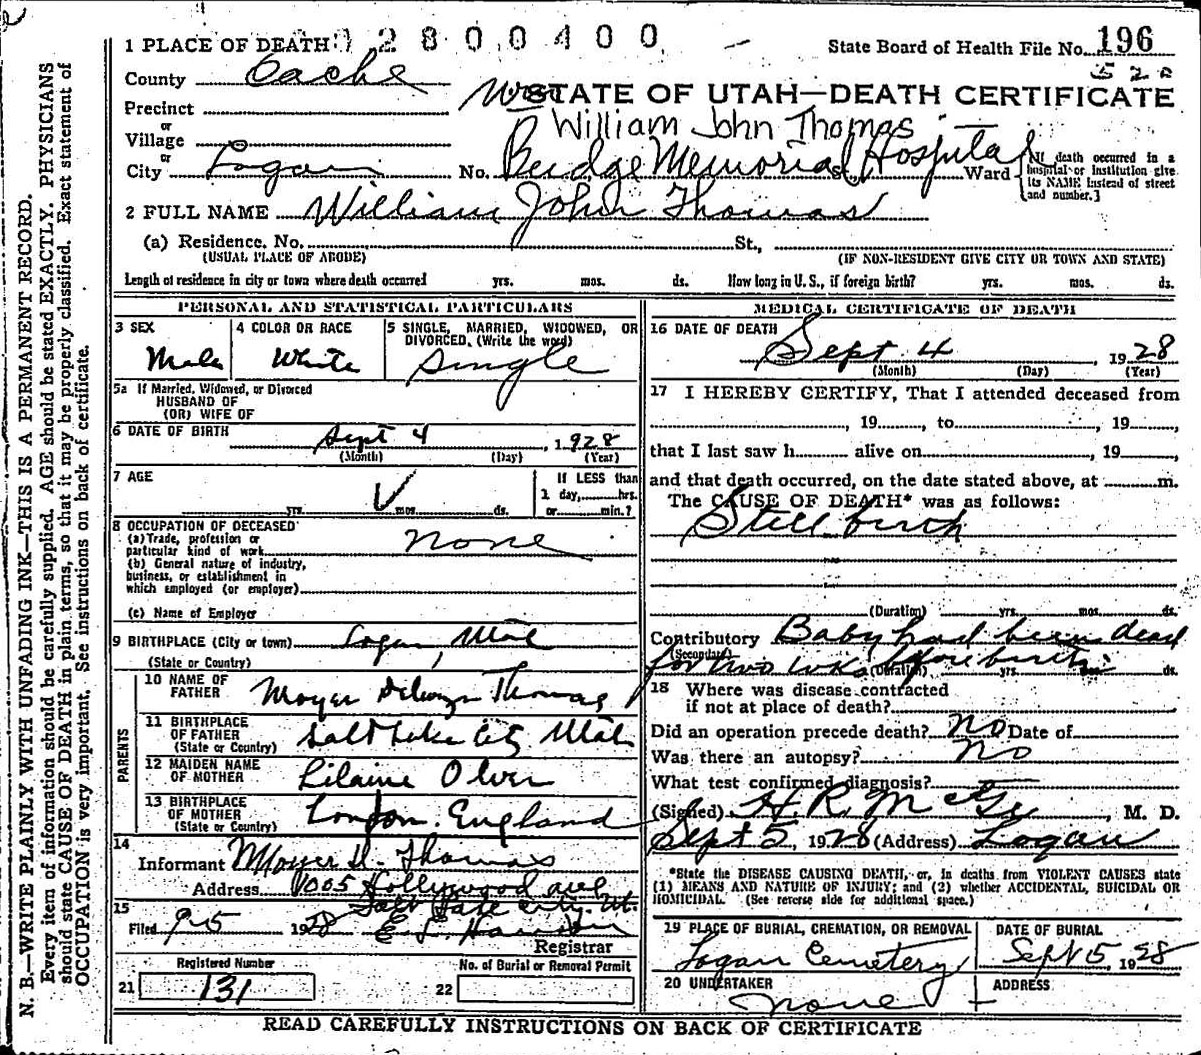 1 PLACE OF DEATH 2 8 0 0 4 0 0
State Board of Health File No. 196
County Cache
520
STATE OF UTAH—DEATH CERTIFICATE
Precinct
or
Village
William John Thomas
or
City Logan No. Budge Memorial Hospital St., Ward
{If death occurred in a
hospital or institution give
its NAME instead of street
and number.}
2 FULL NAME William John Thomas
(a) Residence. No. St.,
(USUAL PLACE OF ABODE) (IF NON-RESIDENT GIVE CITY OR TOWN AND STATE)
Length of residence in city or town where death occurred yrs. mos. ds. How long in U. S., if foreign birth? yrs. mos. ds.
PERSONAL AND STATISTICAL PARTICULARS
3 SEX
Male
4 COLOR OR RACE
White
5 SINGLE, MARRIED, WIDOWED, OR
DIVORCED. (Write the word)
Single
5a If Married, Widowed, or Divorced
HUSBAND OF
(OR) WIFE OF
6 DATE OF BIRTH Sept 4, 1928
(Month) (Day) (Year)
7 AGE
yrs. mos. ds.
If LESS than
1 day, hrs.
or min.?
8 OCCUPATION OF DECEASED
(a) Trade, profession or
particular kind of work none
(b) General nature of industry,
business, or establishment in
which employed (or employer)
(c) Name of Employer
9 BIRTHPLACE (City or town) Logan, Utah
(State or Country)
PARENTS
10 NAME OF
FATHER Moyer Thomas
11 BIRTHPLACE
OF FATHER Salt Lake City Utah
(State or Country)
12 MAIDEN NAME
OF MOTHER Oliver
13 BIRTHPLACE
OF MOTHER London, England
(State or Country)
14
Informant Moyer D. Thomas
Address 1005 Hollywood ave
Salt Lake City, Ut.
15
Filed 9-5 1928
Registrar
Registered Number
21 131
No. of Burial or Removal Permit
22
MEDICAL CERTIFICATE OF DEATH
16 DATE OF DEATH
Sept 4, 1928
(Month) (Day) (Year)
17 I HEREBY CERTIFY, That I attended deceased from
, 19 , to , 19 ,
that I last saw h alive on , 19 ,
and that death occurred, on the date stated above, at m.
The CAUSE OF DEATH* was as follows:
Still birth
(Duration) yrs. mos. ds.
Contributory Baby had been dead
(Secondary)
for two wks before birth (Duration) yrs. mos. ds.
18 Where was disease contracted
if not at place of death?
Did an operation precede death? no Date of
Was there an autopsy? no
What test confirmed diagnosis?
(Signed) H. R. McGee, M. D.
Sept 5, 1928 (Address) Logan
*State the DISEASE CAUSING DEATH, or, in deaths from VIOLENT CAUSES state
(1) MEANS AND NATURE OF INJURY; and (2) whether ACCIDENTAL, SUICIDAL OR
HOMICIDAL. (See reverse side for additional space.)
19 PLACE OF BURIAL, CREMATION, OR REMOVAL
Logan Cemetery
DATE OF BURIAL
Sept 5, 1928
20 UNDERTAKER
none
ADDRESS
READ CAREFULLY INSTRUCTIONS ON BACK OF CERTIFICATE
N. B.—WRITE PLAINLY WITH UNFADING INK—THIS IS A PERMANENT RECORD.
Every item of information should be carefully supplied. AGE should be stated EXACTLY. PHYSICIANS
should state CAUSE OF DEATH in plain terms, so that it may be properly classified. Exact statement of
OCCUPATION is very important. See instructions on back of certificate.